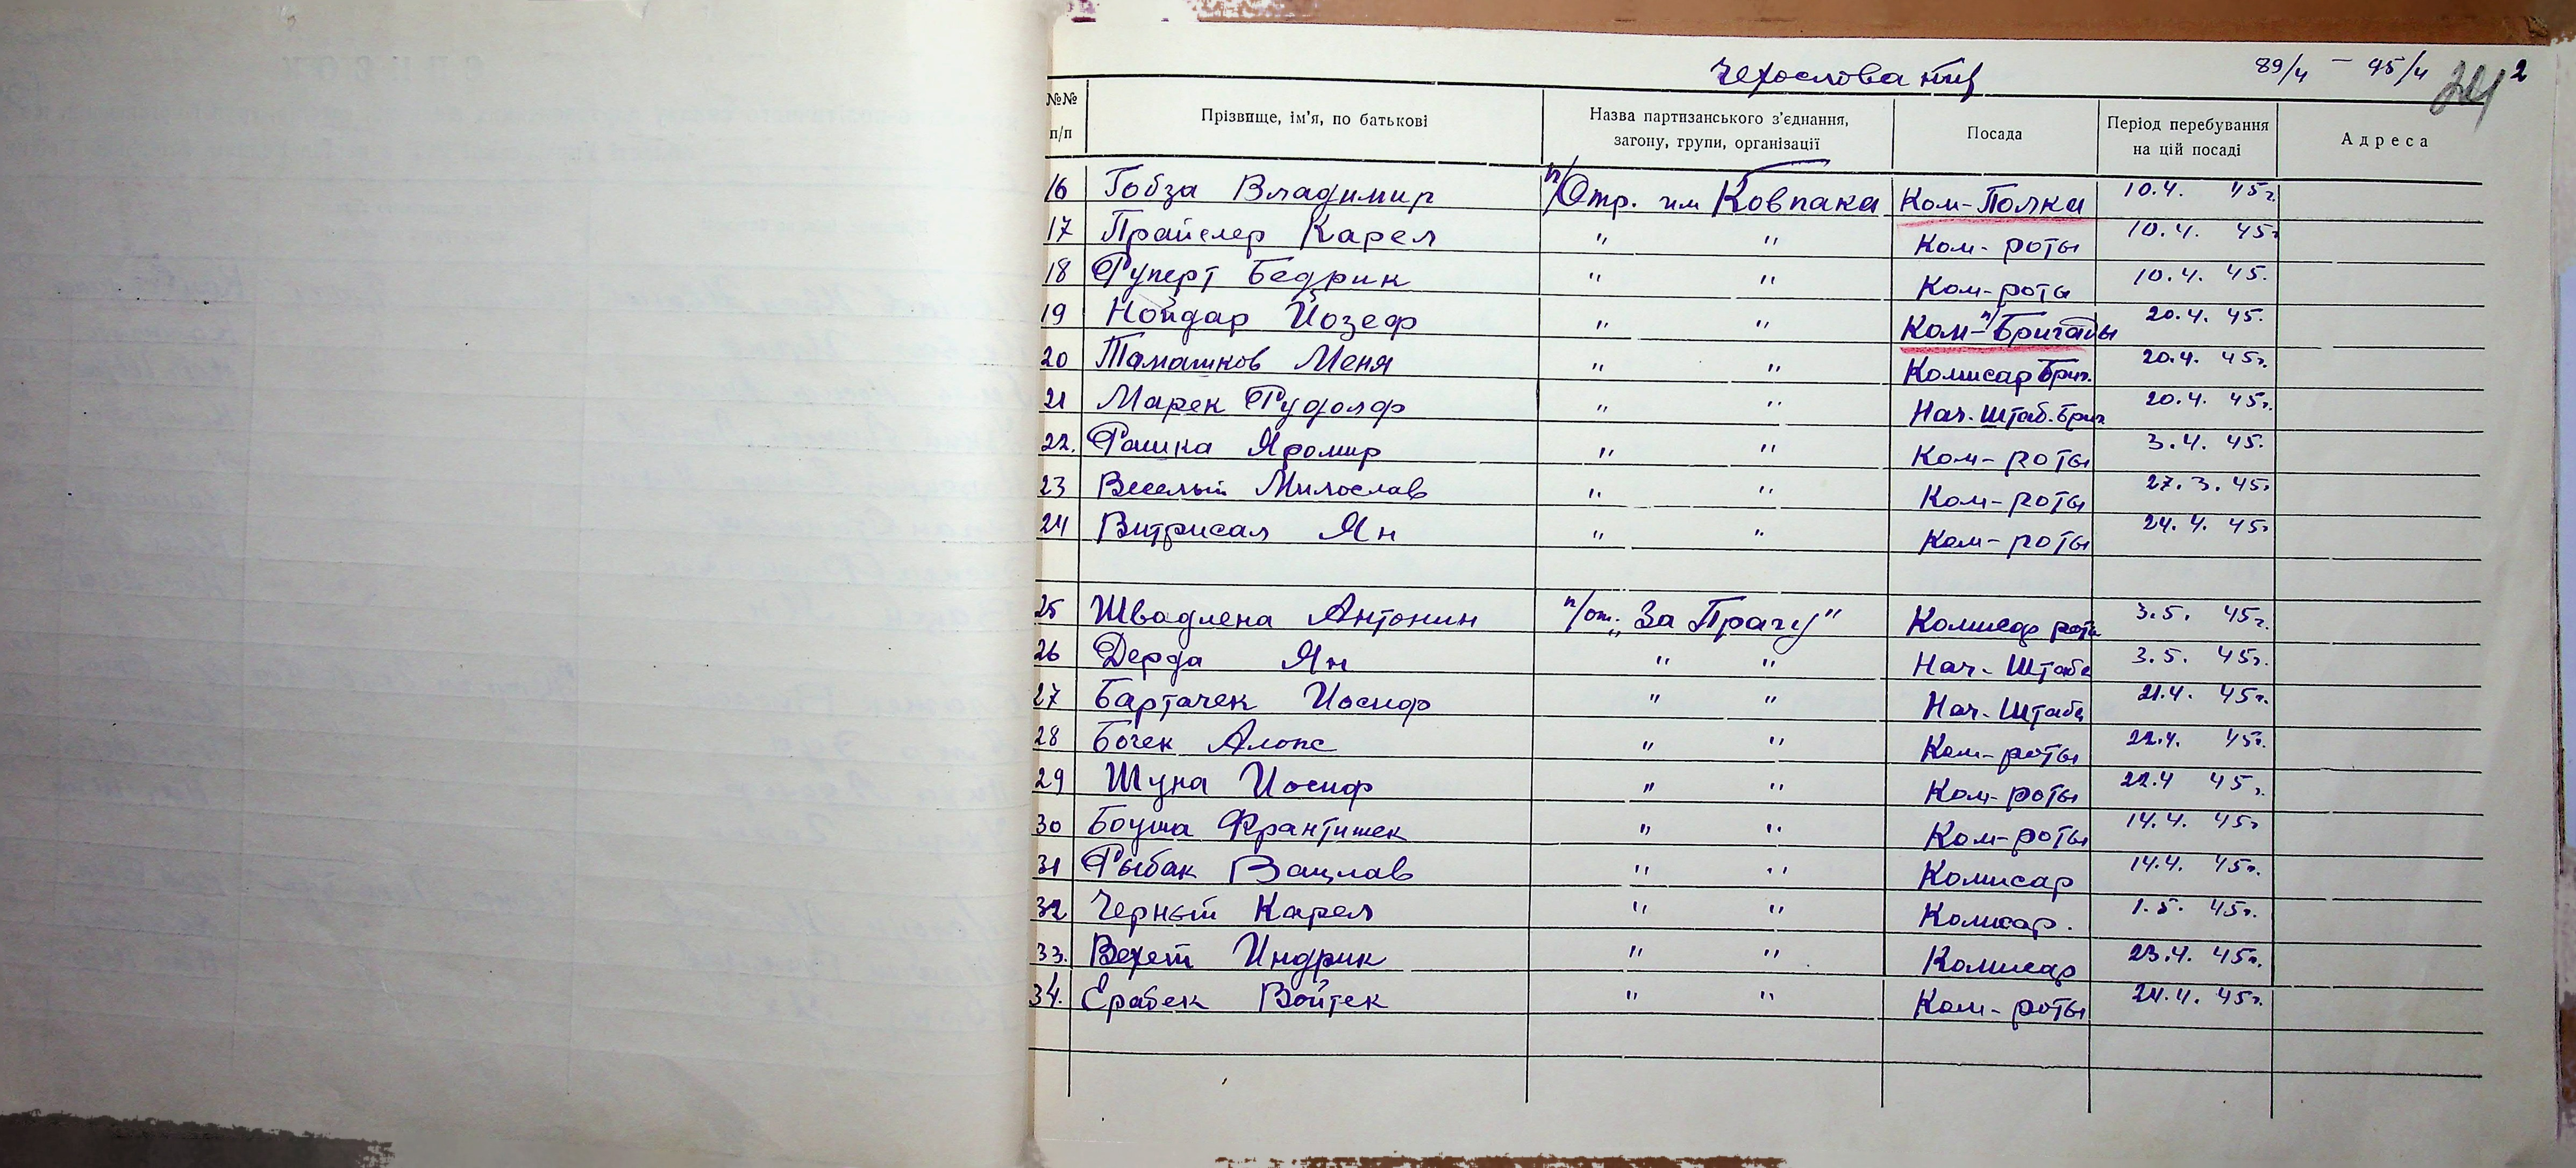 Чехословакия 89/4 – 95/4 2
№№ п/п Прізвище, ім'я, по батькові Назва партизанського з'єднання, загону, групи, організації Посада Період перебування на цій посаді Адреса
16 Гобза Владимир п/Отр. им Ковпака Ком-Полка 10.4. 45г.
17 Прайслер Карел " " Ком-роты 10.4. 45г
18 Руперт Бедрик " " Ком-роты 10.4. 45.
19 Нойдар Йозеф " " Ком-п/Бригады 20.4. 45.
20 Тамашков Меня " " Комисар Бриг. 20.4. 45г.
21 Марек Рудольф " " Нач. Штаб. Бриг 20.4. 45г.
22. Рашка Яромир " " Ком-роты 3.4. 45.
23 Веселый Милослав " " Ком-роты 27.3. 45г
24 Витрисал Ян " " Ком-роты 24.4. 45г
25 Швадлена Антонин п/от. „За Прагу" Комисар роты 3.5. 45г.
26 Дерда Ян " " Нач-Штаба 3.5. 45г.
27 Бартачек Иосиф " " Нач-Штаба 21.4. 45г.
28 Бочек Алоис " " Ком-роты 22.4. 45г.
29 Шуна Иосиф " " Ком-роты 22.4 45г.
30 Боуша Франтишек " " Ком-роты 14.4. 45г
31 Рыбак Вацлав " " Комисар 14.4. 45г.
32 Черный Карел " " Комисар. 1.5. 45г.
33. Вехет Индрик " " Комисар 23.4. 45г.
34. Ерабек Войтек " " Ком-роты 24.4. 45г.